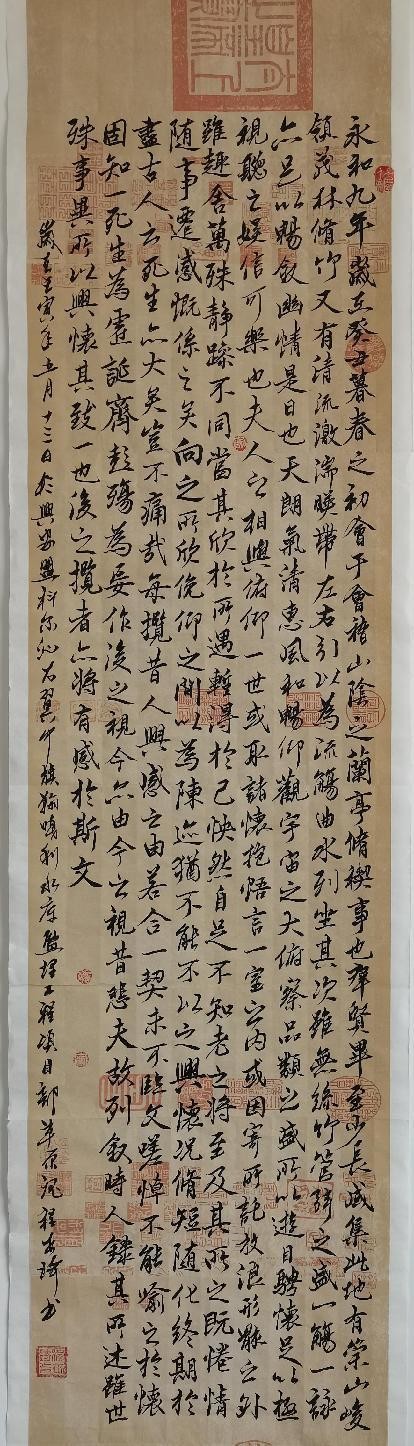 永和九年歲在癸丑暮春之初會于會稽山陰之蘭亭脩稧事也群賢畢至少長咸集此地有崇山峻
領茂林脩竹又有清流激湍暎帶左右引以為流觴曲水列坐其次雖無絲竹管弦之盛一觴一詠
亦足以暢敘幽情是日也天朗氣清惠風和暢仰觀宇宙之大俯察品類之盛所以遊目騁懷足以極
視聽之娛信可樂也夫人之相與俯仰一世或取諸懷抱悟言一室之内或因寄所託放浪形骸之外
雖趣舍萬殊静躁不同當其欣於所遇暫得於己怏然自足不知老之將至及其所之既惓情
随事遷感慨係之矣向之所欣俛仰之閒以為陳迹猶不能不以之興懷況脩短随化終期於
盡古人云死生亦大矣豈不痛哉每攬昔人興感之由若合一契未可臨文嗟悼不能喻之於懷
固知一死生為虛誕齊彭殤為妄作後之視今亦由今之視昔悲夫故列敘時人錄其所述雖世
殊事異所以興懷其致一也後之攬者亦將有感於斯文
歲在壬寅年五月十三日於興安盟科尔沁右翼中旗翰嘎利水库工程項目部草原程书